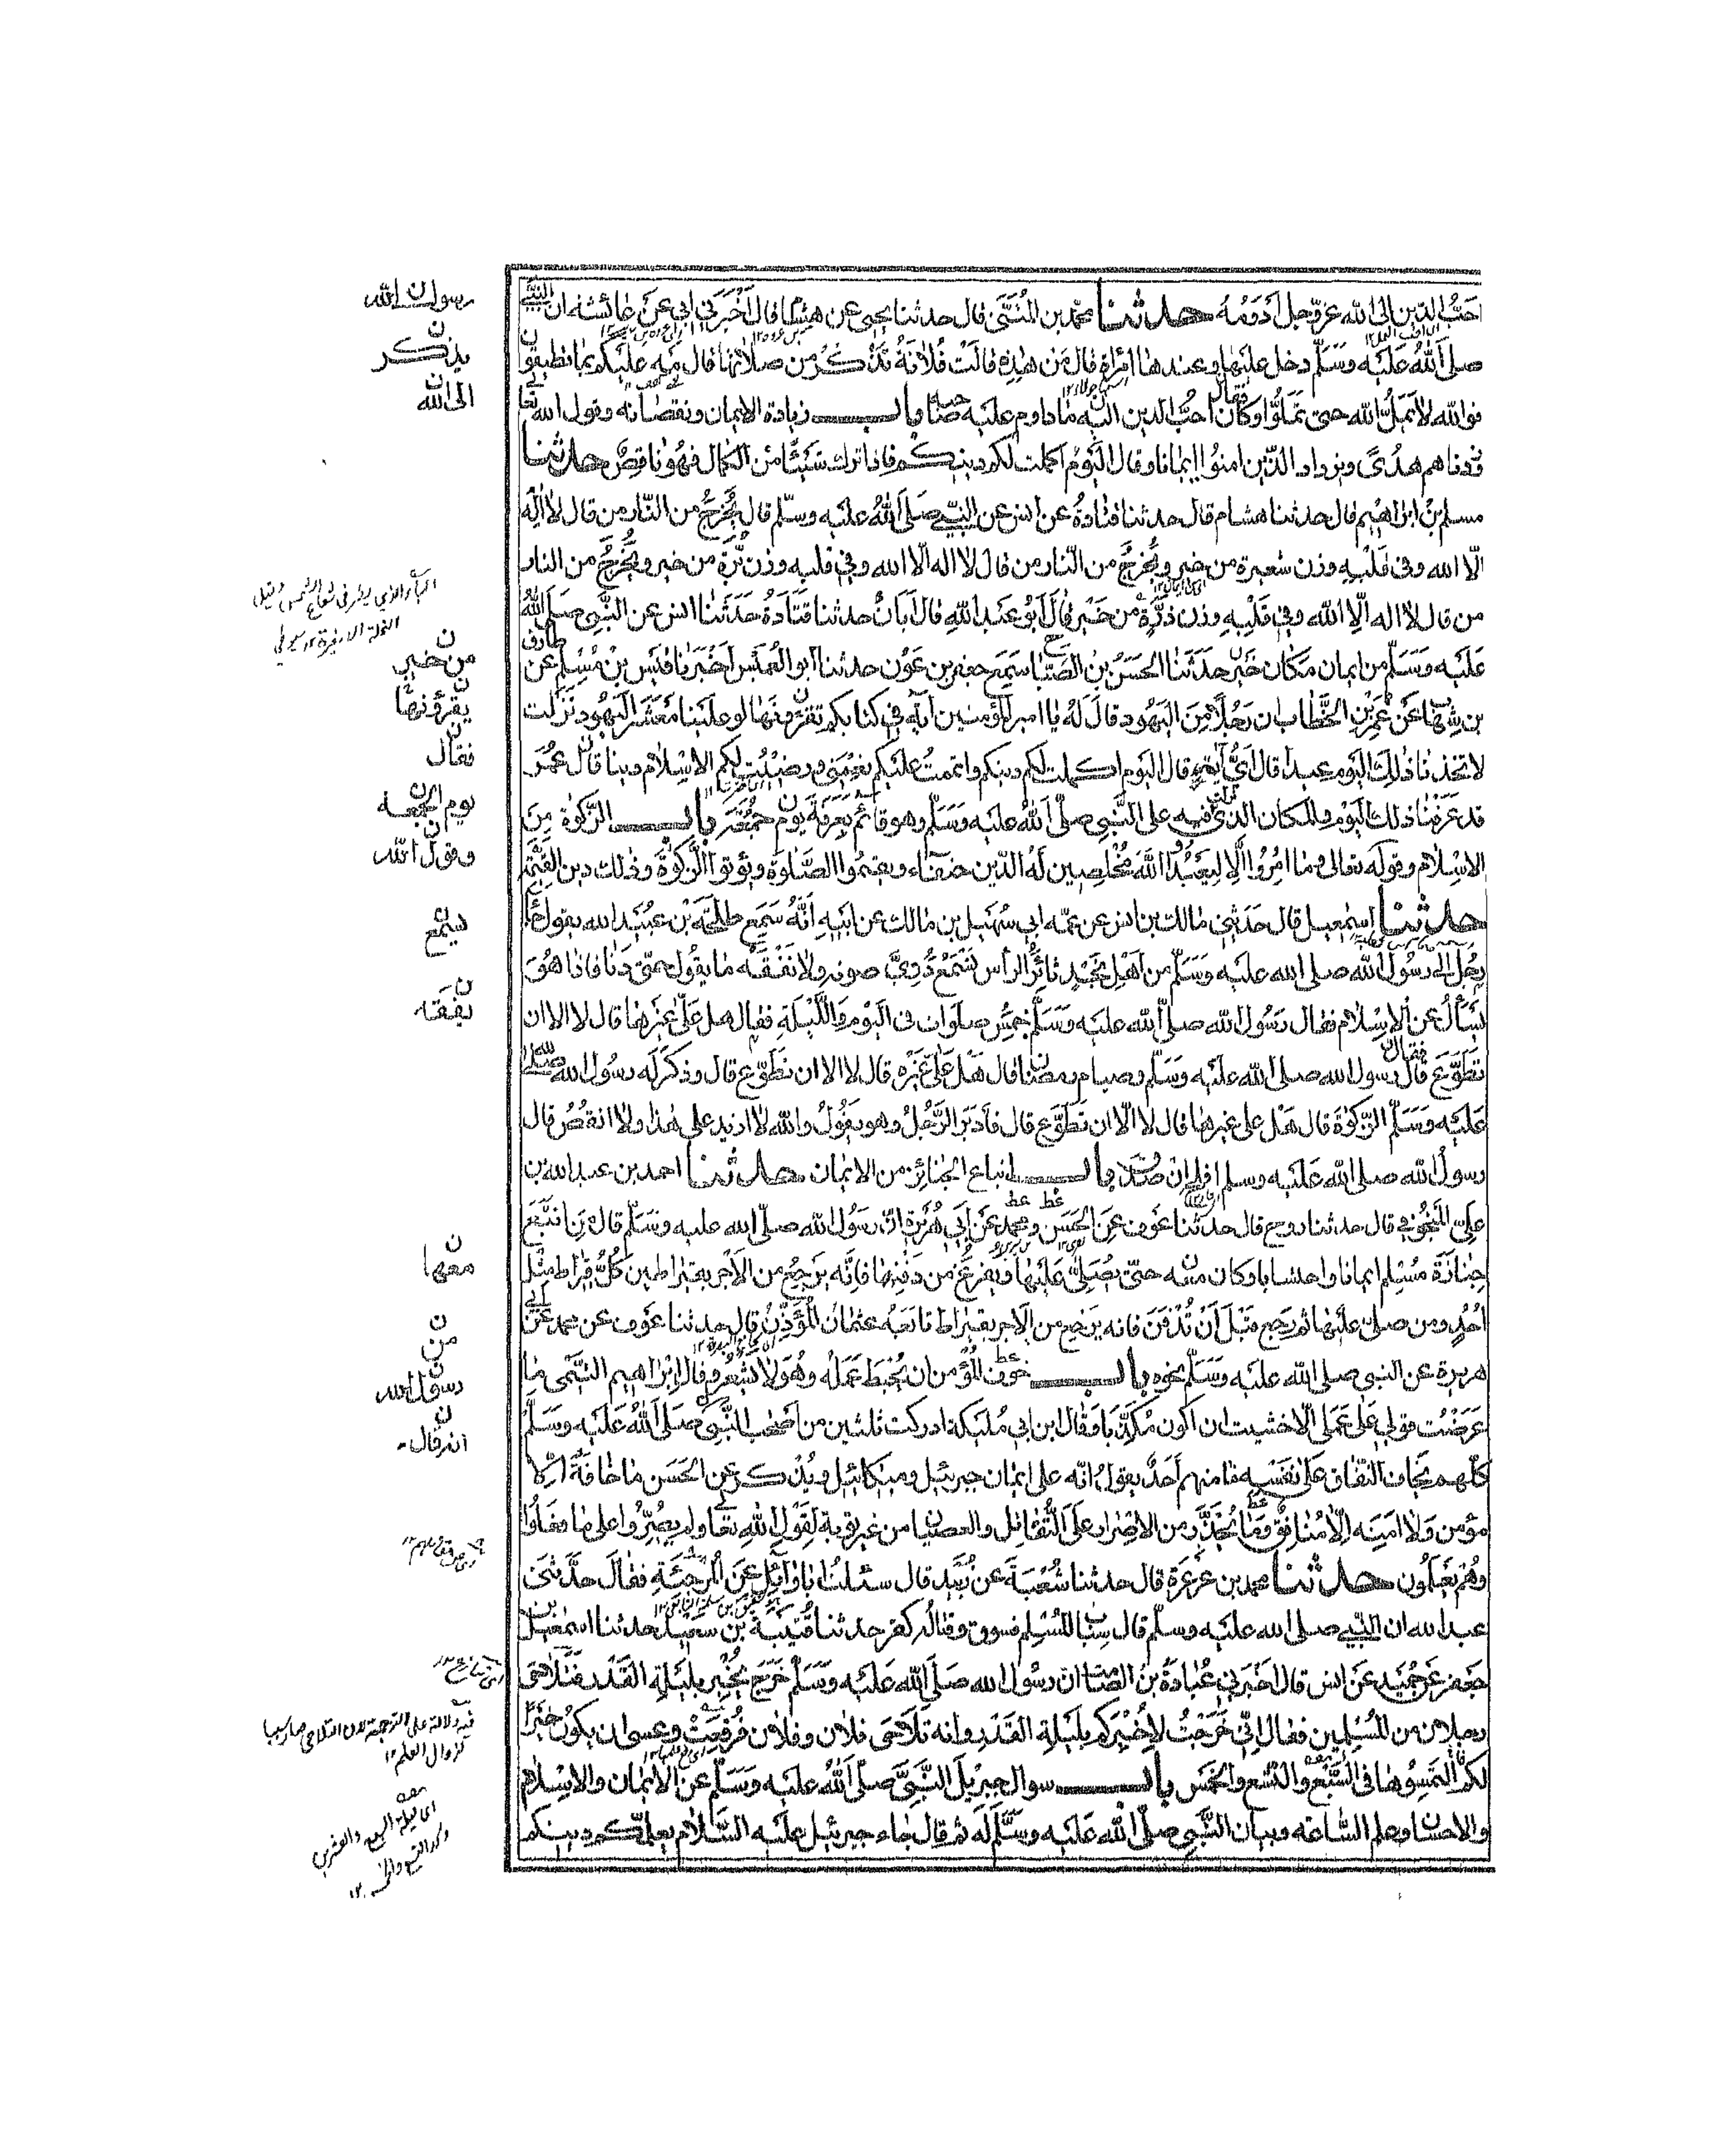 احَبُّ الدّين الى الله عزّوجل اَدْوَمُهُ حدثنا محمد بن المُثَنَّى قال حدثنا يحيى عن هشام قال اَخْبَرَني ابي عَنْ عائشة ان النبيَّ
صلى اللهُ عَلَيْه وَسَلَّم دخل عليها وعندها امْرأة قال مَنْ هٰذِه قالَتْ فُلانَةُ تَذْكُرُ من صلاتها قال مَه عليكم بما تطيقون
فوالله لا يَمَلُّ الله حتى تَمَلُّوا وكان احبُّ الدين اليه ما داوم عليه صاحبه باب زيادة الايمان ونقصانه وقول الله تعالى
وزدناهم هدًى ويزداد الذين امنُوا ايمانا وقال اليَوْمَ اكملت لكم دينكم فاذا ترك شيئًا من الكمال فهو ناقِصٌ حدثنا
مسلم بنُ ابراهيم قال حدثنا هشام قال حدثنا قتادةُ عن انس عن النبي صَلى اللهُ عليه وسلّم قال يُخْرَجُ من النّار من قال لا اله
الّا الله وفى قَلْبِه وزن شعيرة من خير ويُخرَجُ من النّار من قال لا اله الّا الله وفي قلبه وزن بُرّة من خير ويُخْرَجُ من النار
من قال لا اله الّا الله وفي قَلْبِه وزن ذَرَّةٍ من خَيْر قال اَبُو عَبْد اللهِ قال اَبَانُ حدثنا قَتَادَةُ حَدَّثَنا انس عن النَّبي صَلى اللهُ
عَلَيْه وَسَلَّم من ايمان مَكان خَير حَدَّثَنا الحَسَنُ بنُ الصَّبّاح سَمِعَ جعفر بن عَوْن حدثنا ابو العُمَيْس اَخْبَرَنا قَيْس بنْ مُسْلِم عن طارق
بن شِهاب عَنْ عُمَر بْن الخَطّاب ان رَجُلًا مِنَ اليَهُود قال لَهُ يا امير المؤمنين ايةٌ في كتابكم تقرؤنَها لو علَيْنا مَعْشَرَ اليَهُود نَزَلَت
لاتخذنا ذٰلِكَ اليوم عيدا قال اَيُّ ايَةٍ قال اليوم اكملت لكم دينكم واتممتُ عليكم نِعْمَتي ورضيْتُ لكم الاسْلام دينا قال عُمَرُ
قد عَرَفْنا ذلك اليَوْم والمكان الذي نزلت فيه على النَّبي صلى اللهُ عليه وَسَلَّم وهو قائم بِعَرفَةَ يَوْم جُمُعَة باب الزّكوٰة مِنَ
الاسْلام وقوله تعالى وما اُمِرُوا اِلّا لِيَعْبُدُوا اللهَ مُخْلِصِين لَهُ الدّين حنفاء ويقيمُوا الصَّلوٰةَ ويؤتوا الزَّكوٰةَ وذٰلك دين القَيِّمَة
حدثنا اسمٰعيل قال حَدّثني مالك بن انس عن عمّه ابي سُهَيل بن مالك عن ابيه اَنَّهُ سَمِعَ طلحَةَ بْن عُبَيْد الله يقول جاء
رجُل الى رَسُول الله صلى الله عليه وَسَلَّم من اهْل نَجْدٍ ثائِرُ الرأس نَسْمَعُ دَوِيَّ صوته ولا نَفْقَه ما يقول حتى دَنا فاذا هُوَ
يَسْأَلُ عَن الاسْلام فقال رَسُول الله صلى الله عليه وَسَلَّم خمسُ صلوات فى اليَوْم واللَّيْلَةِ فقال هل عَلَيَّ غَيْرُها قال لا الا ان
تَطَوَّعَ قال رسول الله صلى الله عليه وَسَلَّم وصيام رمضان قال هَلْ عَلَيَّ غَيْرُه قال لا الا ان تَطَوَّعَ قال وذكَرَ له رسُول الله صلى الله
عَلَيْه وَسَلَّم الزّكوٰةَ قال هَلْ على غيرها قال لا الّا ان تَطَوَّع قال فاَدبَرَ الرَّجُلُ وهو يَقُولُ والله لا ازيد على هٰذا ولا انقُصُ قال
رسولُ الله صلى الله عَلَيْه وسلم افلح ان صدق باب اتباع الجنائز من الايمان حدثنا احمد بن عبد الله بن
عليّ المَنْجُوفي قال حدثنا روح قال حدثنا عَوْف عن الحَسَن ومحمد عَنْ اَبي هُرَيْرة انّ رَسُول الله صلّى الله عليه وَسَلَّم قال مَن اتّبَعَ
جِنازَةَ مُسْلِم ايمانا واحتسابا وكان معه حتى يُصَلّى عَلَيْها ويفرغ من دَفْنِها فانّه يَرجِعُ من الاَجْر بقيراطين كُلُّ قيراط مثل
اُحُدٍ ومن صلى عليها ثم رَجع قَبْلَ اَنْ تُدْفَنَ فانه يَرْجِع من الاجر بقيراط تابَعَهُ عثمانُ المؤَذِّنُ قال حدثنا عَوْف عن محمد عَنْ ابي
هريرة عن النبي صلى الله عليه وَسَلَّم نحوه باب خَوْف المؤمن ان يُحْبَط عَمَلُه وهُوَ لا يَشْعُر وقال ابْراهيم التَّيْمى ما
عَرَضْت قولي عَلى عَمَلي الّا خشيت ان اكون مُكَذِّبا وقال ابن ابي مُلَيكة ادركت ثلثين من اَصْحٰب النَّبي صَلى اللهُ عَلَيْه وَسَلَّم
كلّهم يَخاف النّفاق عَلى نَفْسِه ما منهم اَحَدٌ يقولُ انّه على ايمان جبرئيل وميكائيل ويُذْكر عن الحَسَن ما خافَهُ الا
مؤمن وَلا امنَه الّا مُنافِق وما يُحْذَر من الاصْرار على التَّقاتل والعصيان من غير توبة لِقَوْل اللهِ تعالى ولم يُصِرُّوا على ما فعلُوا
وهُم يَعْلَمُون حدثنا محمد بن عَرْعَرَة قال حدثنا شُعْبَة عن زُبَيْد قال سئلتُ ابا وائِل عَنِ المُرجِئَة فقال حَدَّثَنى
عبد الله ان النَّبي صلى الله عليه وسلّم قال سِبابُ المُسْلِم فسوق وقتالُه كفر حدثنا قُتَيْبَة بْن سَعيد حدثنا اسمٰعيل بن
جَعفر عَنْ حُمَيْد عَنْ انس قال اَخْبَرَني عُبادَةُ بنُ الصّامت ان رسُول الله صَلَّى الله عَلَيْه وَسَلَّم خَرَجَ يُخْبِر بلَيْلَةِ القَدْر فَتَلاحٰى
رجلان من المُسْلِمِين فقال انّي خَرَجْتُ لاُخْبِرَكم بليْلَةِ القَدر وانه تَلاحٰى فلان وفلان فَرُفِعَتْ وعسى ان يكونَ خَيْرًا
لكم التمِسُوها فى السَّبْع والتّسْع والخَمْس باب سوال جبريلَ النَّبيَّ صلّى اللهُ عليه وَسَلَّم عن الايمان والاسْلام
والاحسان وعلم السّاعة وبيان النَّبي صلّى الله عَلَيْه وسَلَّم لَه ثم قال جاء جبرئيل علَيْه السَّلام يعلمكم دينكم
رسول الله
يذكر
الى الله
من خير
يقرؤنها
فقال
يوم الجمعة
وقول الله
يسمع
يفقه
معها
من
رسول الله
انه قال